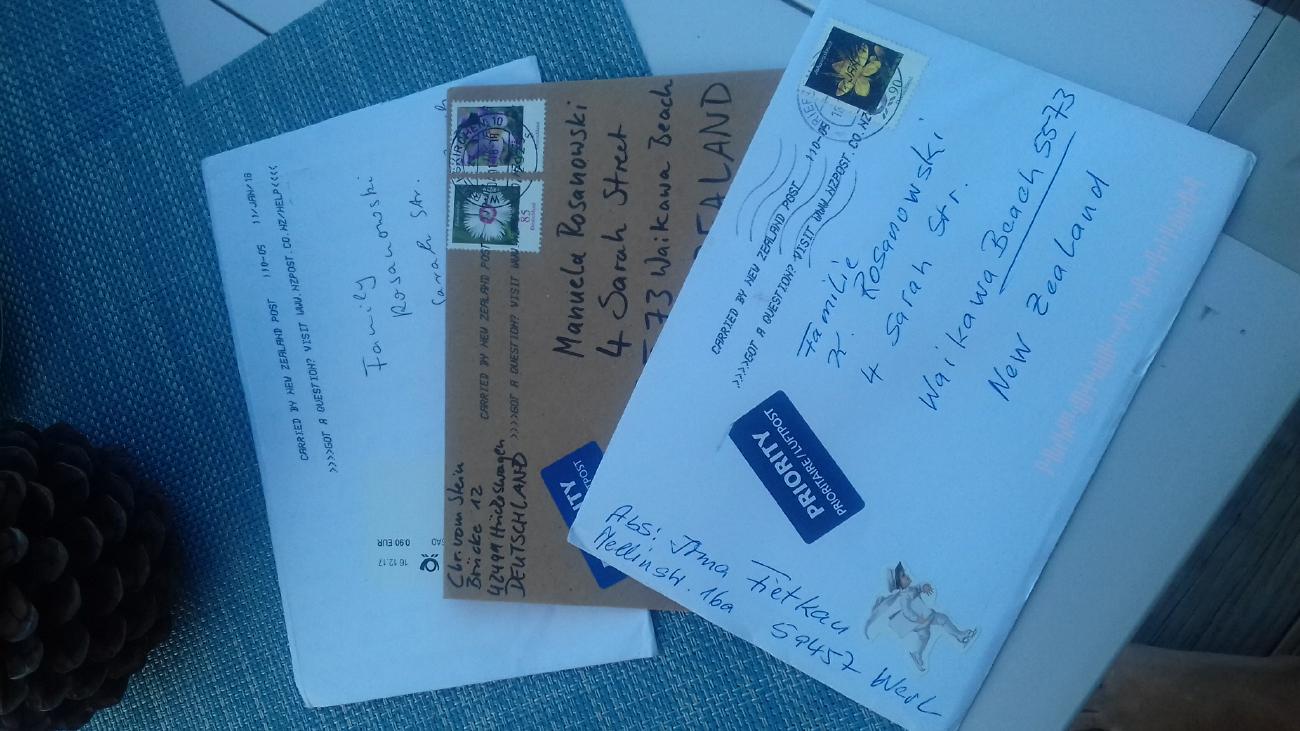 110-05 11/JAN/18
CARRIED BY NEW ZEALAND POST
>>>>GOT A QUESTION? VISIT WWW.NZPOST.CO.NZ/HELP<<<<
Family
Rosanowski
Sarah Str.
16.12.17
0.90 EUR
85
CARRIED BY NEW ZEALAND POST
>>>>GOT A QUESTION? VISIT WWW.
Manuela Rosanowski
4 Sarah Street
5573 Waikawa Beach
ZEALAND
Chr. vom Stein
Brücke 12
42499 Hückeswagen
DEUTSCHLAND
90
CARRIED BY NEW ZEALAND POST 110-05
>>>>GOT A QUESTION? VISIT WWW.NZPOST.CO.NZ
Familie
K. Rosanowski
4 Sarah Str.
Waikawa Beach 5573
New Zealand
PRIORITY
PRIORITAIRE/LUFTPOST
Abs: Irma Fietkau
Mellinstr. 16a
59457 Werl